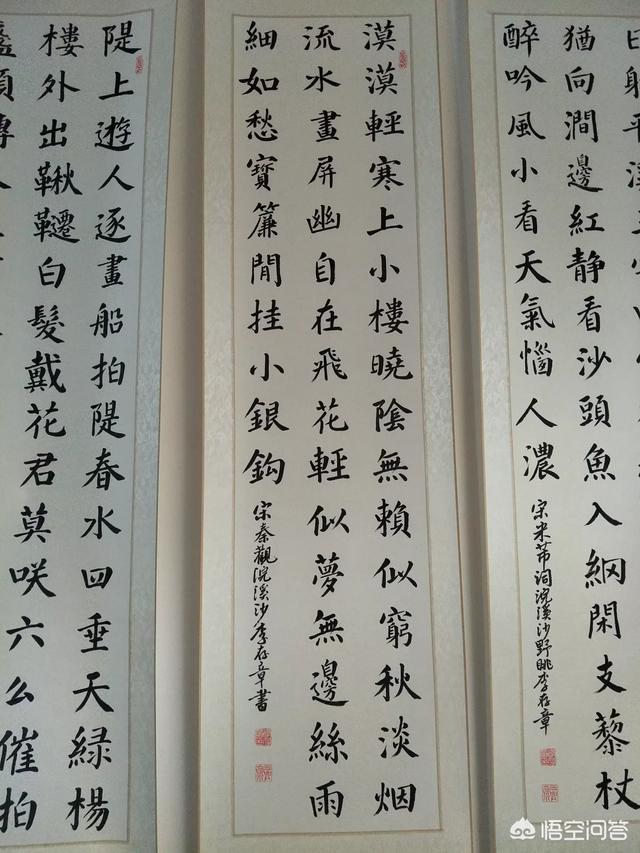 猶向澗邊紅静看沙頭魚入網閑支藜杖
醉吟風小看天氣惱人濃
宋米芾詞浣溪沙野眺李存章
漠漠輕寒上小樓曉陰無賴似窮秋淡烟
流水畫屏幽自在飛花輕似夢無邊絲雨
細如愁寶簾閒挂小銀鈎
宋秦觀浣溪沙李存章書
隄上遊人逐畫船拍隄春水四垂天緑楊
樓外出鞦韆白髮戴花君莫咲六么催拍
盞頻傳人
悟空问答